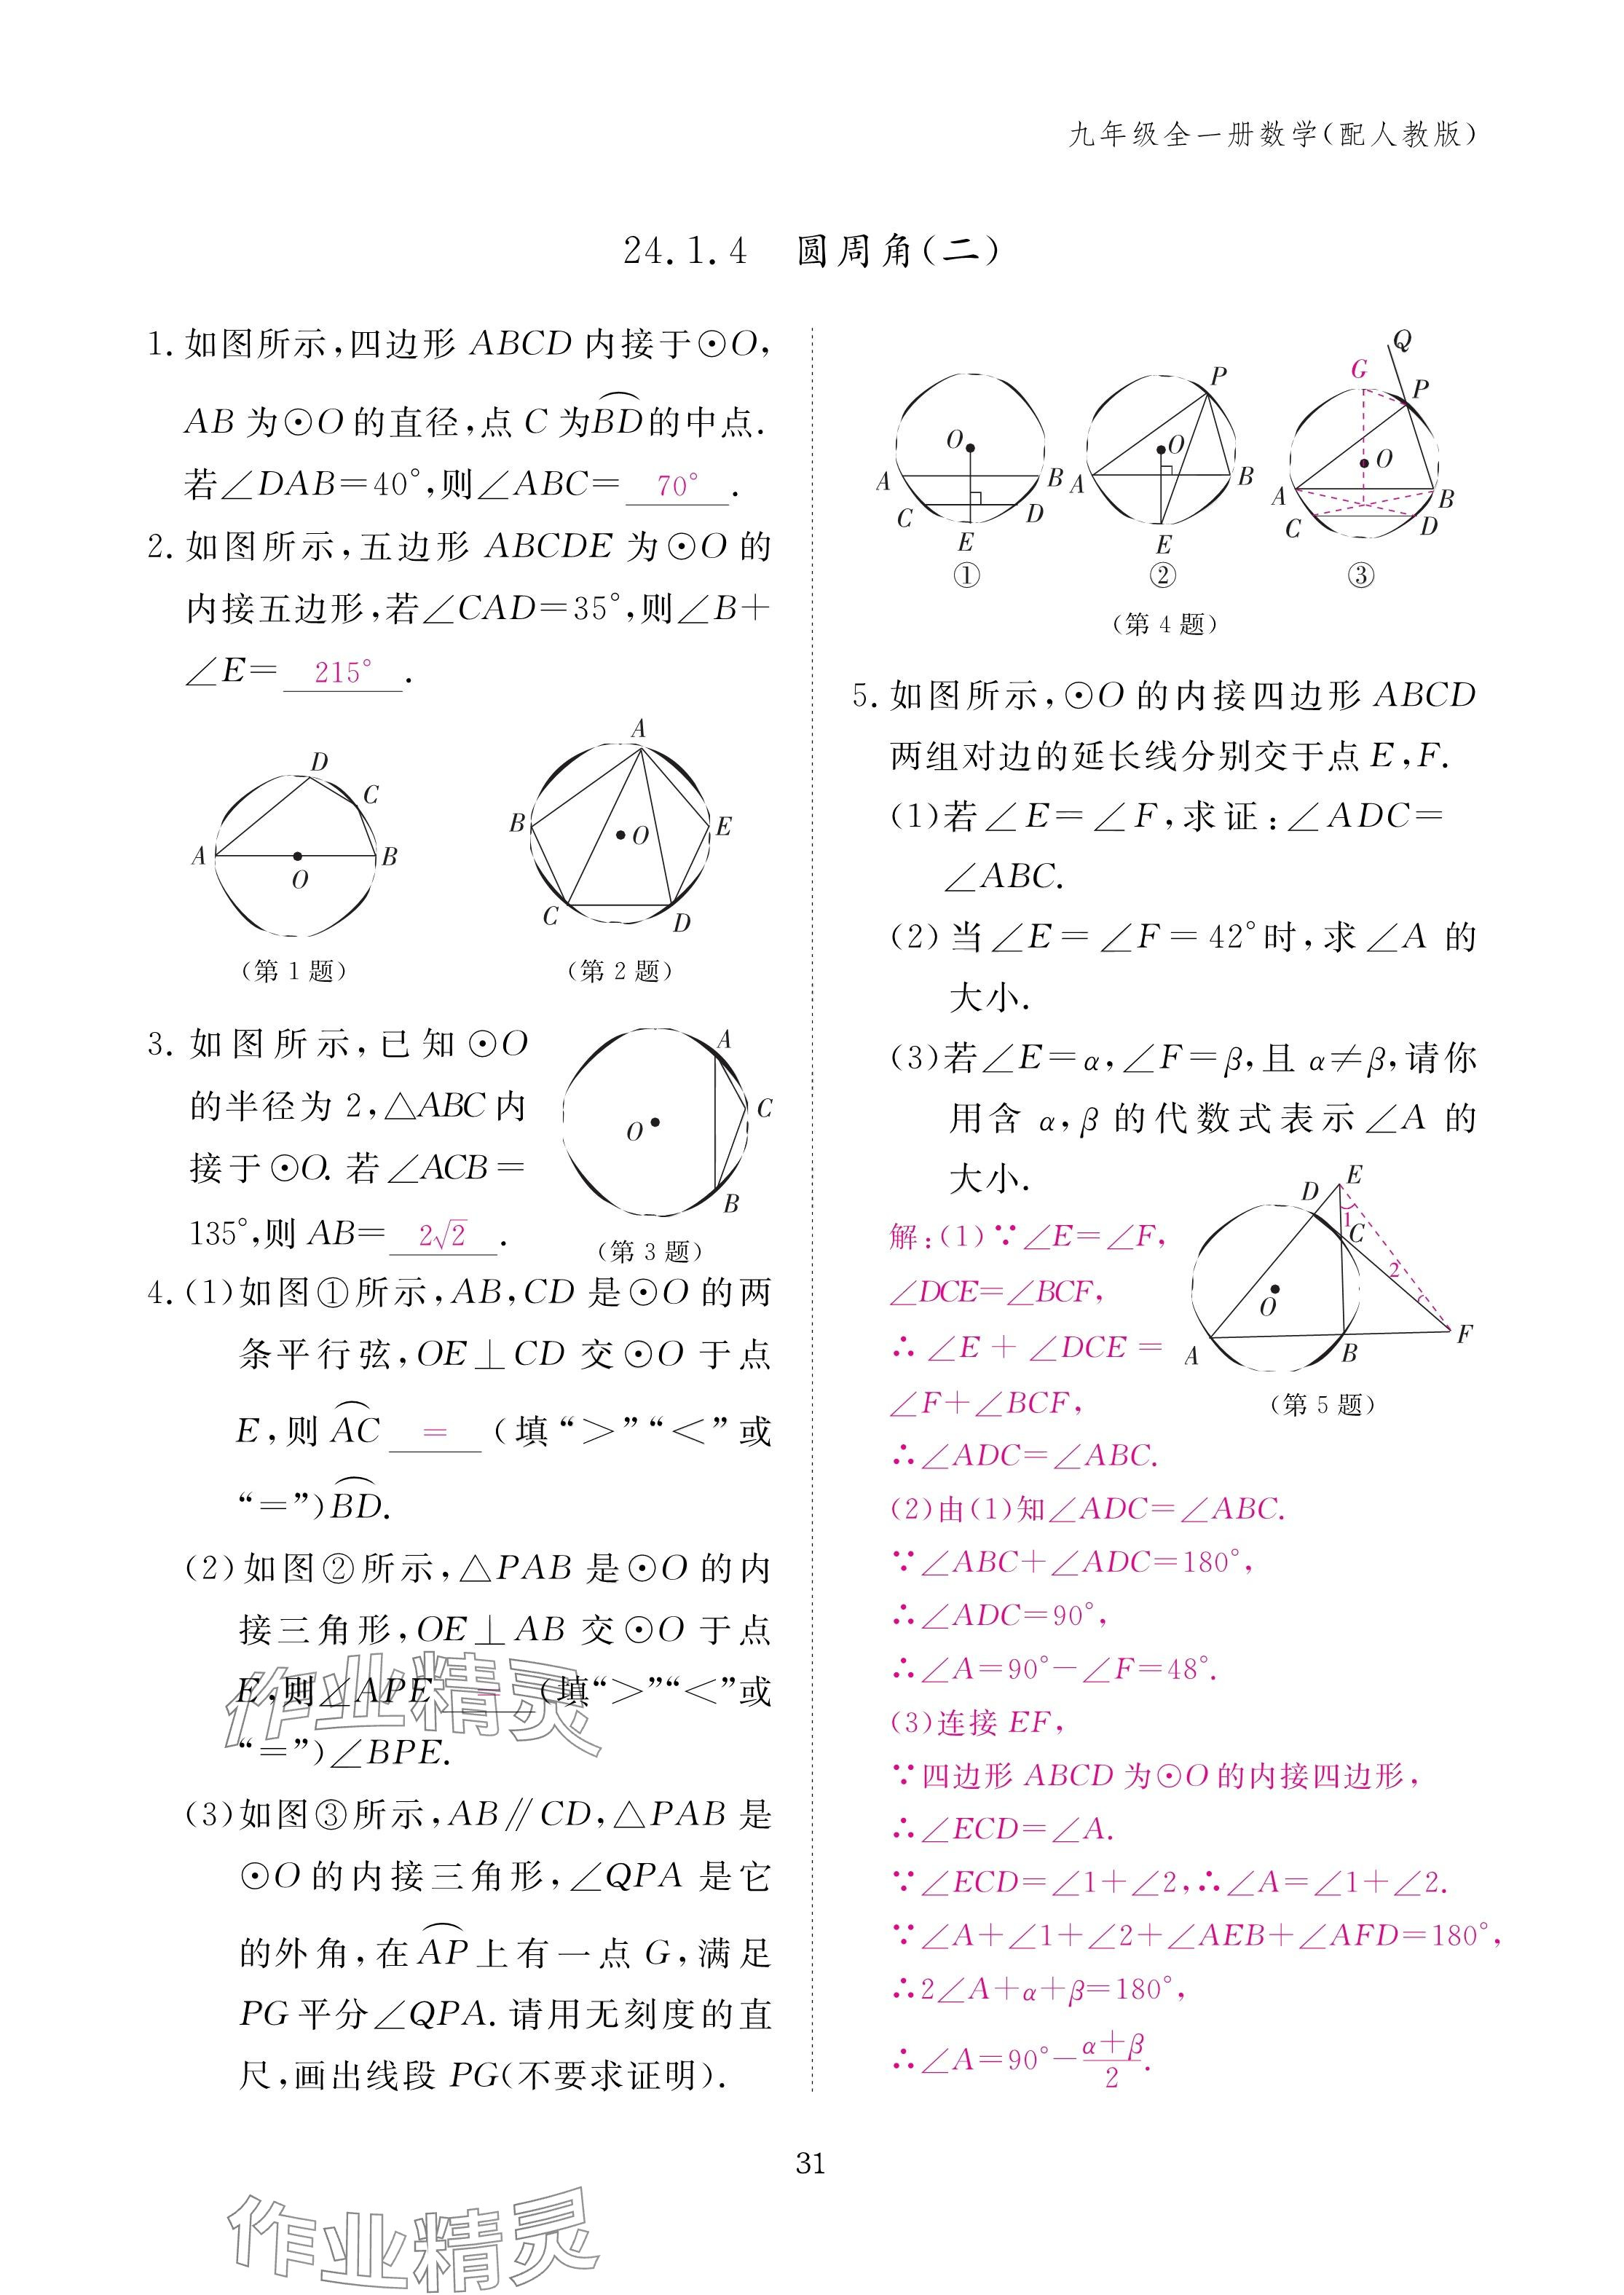 九年级全一册数学(配人教版)
24.1.4 圆周角(二)
1. 如图所示,四边形 ABCD 内接于⊙O,
AB 为⊙O 的直径,点 C 为BD的中点.
若∠DAB=40°,则∠ABC= 70° .
2. 如图所示,五边形 ABCDE 为⊙O 的
内接五边形,若∠CAD=35°,则∠B+
∠E= 215° .
D
C
A
B
O
(第 1 题)
A
B
E
O
C
D
(第 2 题)
3. 如图所示,已知⊙O
的半径为 2,△ABC 内
接于⊙O. 若∠ACB=
135°,则 AB= 2√2 .
A
C
O
B
(第 3 题)
4. (1)如图①所示,AB,CD 是⊙O 的两
条平行弦,OE⊥CD 交⊙O 于点
E,则 AC = (填“>”“<”或
“=”)BD.
(2)如图②所示,△PAB 是⊙O 的内
接三角形,OE⊥AB 交⊙O 于点
E,则∠APE = (填“>”“<”或
“=”)∠BPE.
(3)如图③所示,AB∥CD,△PAB 是
⊙O 的内接三角形,∠QPA 是它
的外角,在AP上有一点 G,满足
PG 平分∠QPA. 请用无刻度的直
尺,画出线段 PG(不要求证明).
O
A
B
C
D
E
①
P
O
A
B
E
②
Q
G
P
O
A
B
C
D
③
(第 4 题)
5. 如图所示,⊙O 的内接四边形 ABCD
两组对边的延长线分别交于点 E,F.
(1)若∠E=∠F,求证:∠ADC=
∠ABC.
(2)当∠E=∠F=42°时,求∠A 的
大小.
(3)若∠E=α,∠F=β,且 α≠β,请你
用含 α,β 的代数式表示∠A 的
大小.
E
D
1
C
2
O
F
A
B
(第 5 题)
解:(1)∵∠E=∠F,
∠DCE=∠BCF,
∴∠E+∠DCE=
∠F+∠BCF,
∴∠ADC=∠ABC.
(2)由(1)知∠ADC=∠ABC.
∵∠ABC+∠ADC=180°,
∴∠ADC=90°,
∴∠A=90°-∠F=48°.
(3)连接 EF,
∵四边形 ABCD 为⊙O 的内接四边形,
∴∠ECD=∠A.
∵∠ECD=∠1+∠2,∴∠A=∠1+∠2.
∵∠A+∠1+∠2+∠AEB+∠AFD=180°,
∴2∠A+α+β=180°,
∴∠A=90°-(α+β)/2.
31
作业精灵
作业精灵